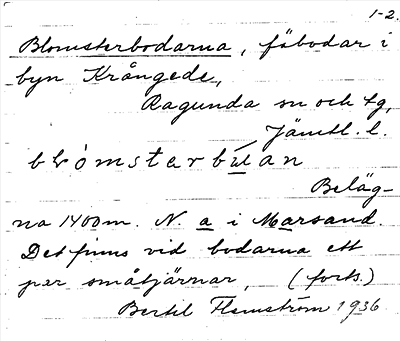 1-2.
Blomsterbodarna, fäbodar i
byn Krångede,
Ragunda sn och tg,
Jämtl. l.
blomsterbu̇an
Beläg-
na 1400 m. N a i Marsand.
Det finns vid bodarna ett
par småtjärnar, (forts.)
Bertil Flemström 1936